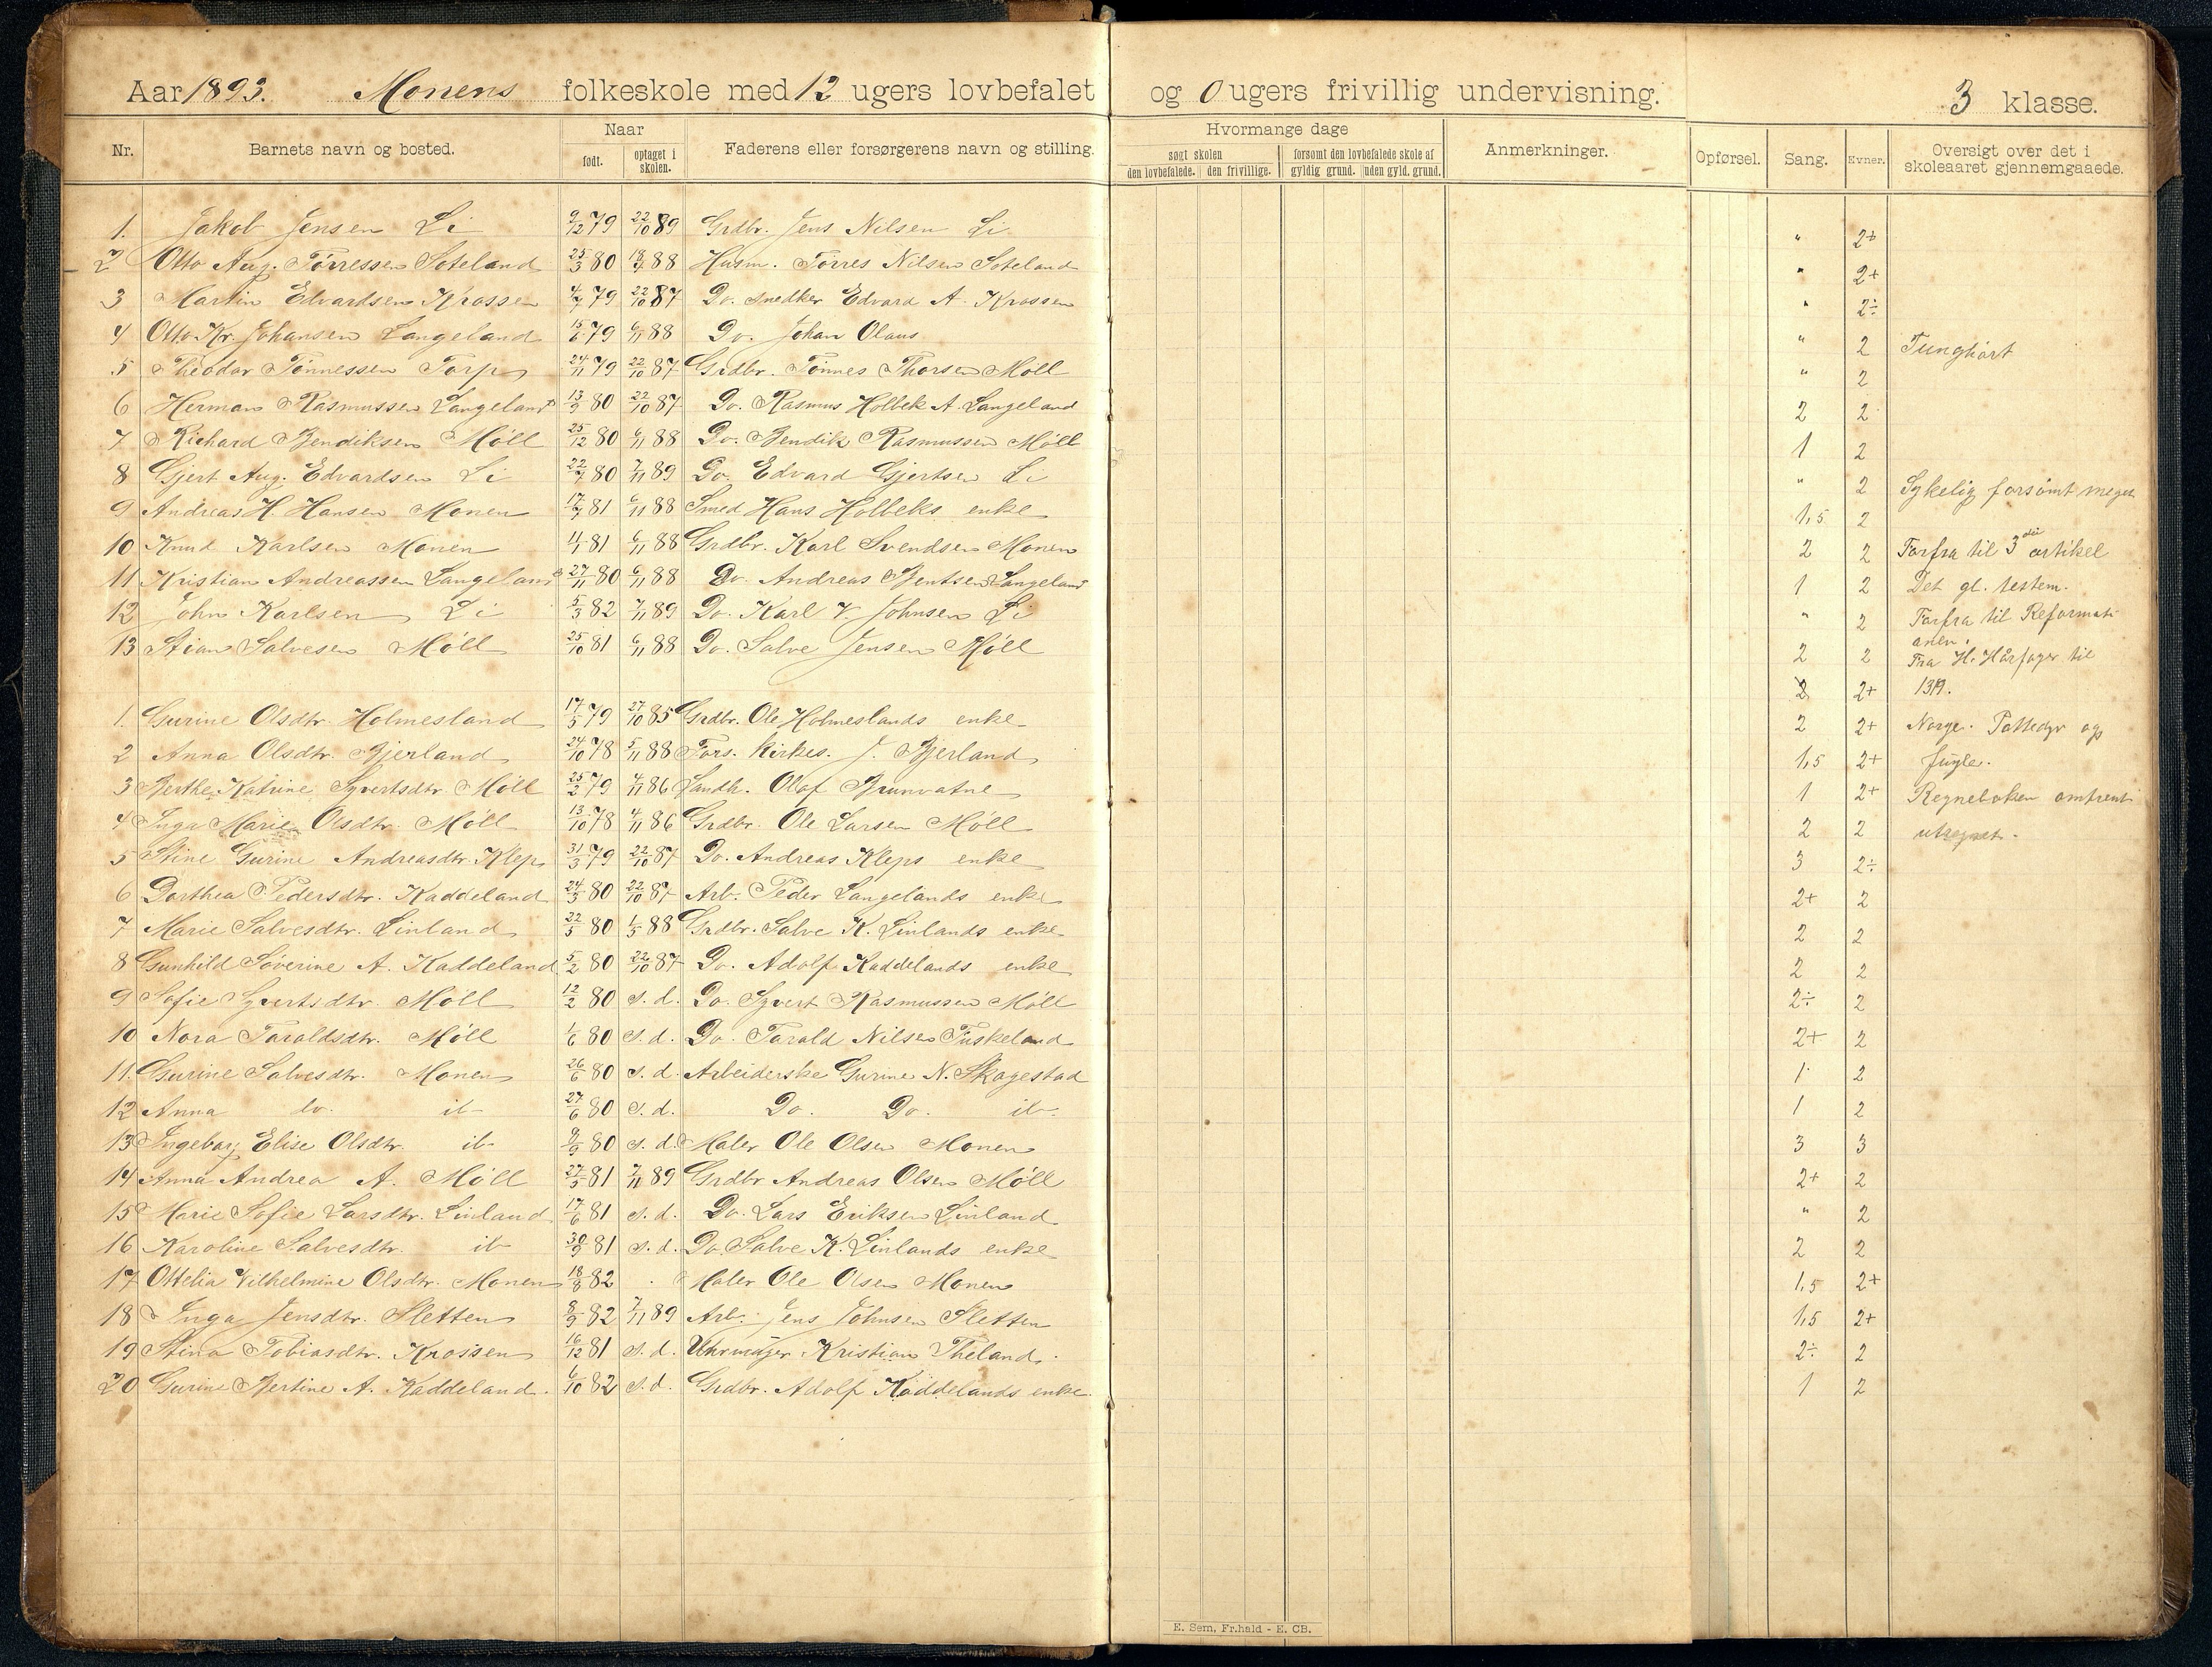 Aar 1893. Monens folkeskole med 12 ugers lovbefalet og 0 ugers frivillig undervisning. 3 klasse.
Nr. Barnets navn og bosted. Naar født. optaget i skolen. Faderens eller forsørgerens navn og stilling. Hvormange dage søgt skolen den lovbefalede. den frivillige. forsømt den lovbefalede skole af gyldig grund. uden gyld. grund. Anmerkninger. Opførsel. Sang. Evner. Oversigt over det i skoleaaret gjennemgaaede.
1. Jakob Jensen Li 9/12 79 22/10 89 Grdbr. Jens Nilsen Li " 2+
2 Otto Aug. Tørressen Soteland 25/3 80 88 Husm. Tørres Nilsen Soteland " 2+
3 Martin Edvardsen Krossen 4/7 79 22/10 87 Do. snedker Edvard A. Krossen " 2÷
4 Otto Kr. Johansen Langeland 15/6 79 6/11 88 Do. Johan Olaus " 2 Tunghørt
5 Theodor Tønnessen Torp 24/11 79 22/10 87 Grdbr. Tønnes Thorsen Møll " 2
6 Herman Rasmussen Langeland 13/9 80 22/10 87 Do. Rasmus Holbek A. Langeland 2 2
7 Richard Bendiksen Møll 25/12 80 6/11 88 Do. Bendik Rasmussen Møll 1 2
8 Gjert Aug. Edvardsen Li 22/7 80 7/11 89 Do. Edvard Gjertsen Li " 2 Sykelig forsømt meget
9 Andreas H. Hansen Monen 17/7 81 6/11 88 Smed Hans Holbeks enke 1,5 2
10 Knud Karlsen Monen 4/1 81 6/11 88 Grdbr. Karl Svendsen Monen 2 2 Forfra til 3die artikel
11 Kristian Andreassen Langeland 27/11 80 6/11 88 Do. Andreas Bentsen Langeland 1 2 Det gl. testem.
12 John Karlsen Li 5/3 82 7/11 89 Do. Karl V. Johnsen Li " 2 Forfra til Reformati
13 Stian Salvesen Møll 25/10 81 6/11 88 Do. Salve Jensen Møll 2 2 onen. Fra H. Hårfager til
1. Gurine Olsdtr. Holmesland 17/5 79 27/10 85 Grdbr. Ole Holmeslands enke 2 2+ 1319.
2 Anna Olsdtr. Bjerland 24/10 78 5/11 88 Fors. kirkes. J. Bjerland 2 2+ Norge. Pattedyr og
3 Berthe Katrine Syvertsdtr Møll 25/2 79 4/11 86 Landh. Olaf Brunvatne 1,5 2+ fugle.
4 Inga Marie Olsdtr. Møll 13/10 78 4/11 86 Grdbr. Ole Larsen Møll 1 2+ Regneboken omtrent
5 Stine Gurine Andreasdtr. Kleps 31/3 79 22/10 87 Do. Andreas Kleps enke 2 2 utregnet.
3 2÷
6 Dorthea Pedersdtr. Kaddeland 24/5 80 22/10 87 Arb. Peder Langelands enke 2+ 2
7 Marie Salvesdtr. Linland 22/5 80 1/5 88 Grdbr. Salve K. Linlands enke 2 2
8 Gunhild Søverine A. Kaddeland 5/2 80 22/10 87 Do. Adolf Kaddelands enke 2 2
9 Sofie Syvertsdtr. Møll 12/2 80 s. d. Do. Syvert Rasmussen Møll 2÷ 2
10 Nora Taraldsdtr. Møll 1/6 80 s. d. Do. Tarald Nilsen Fuskeland 2+ 2
11. Gurine Salvesdtr. Monen 26/6 80 s. d. Arbeiderske Gurine N. Skagestad 1 2
12 Anna do. ib 27/6 80 s. d. Do. Do. ib. 1 2
13 Ingeborg Elise Olsdtr. ib 9/9 80 s. d. Maler Ole Olsen Monen 3 3
14 Anna Andrea A. Møll 27/5 81 7/11 89 Grdbr Andreas Olsen Møll 2+ 2
15 Marie Sofie Larsdtr. Linland 17/6 81 s. d. Do. Lars Eriksen Linland " 2
16 Karoline Salvesdtr. ib 30/9 81 s. d. Do Salve K. Linlands enke 2 2
17 Ottelia Vilhelmine Olsdtr. Monen 18/8 82 Maler Ole Olsen Monen 1,5 2+
18 Inga Jensdtr. Sletten 8/9 82 7/11 89 Arb. Jens Johnsen Sletten 1,5 2+
19 Stina Tobiasdtr. Krossen 16/12 81 s. d. Uhrmager Kristian Theland. 2÷ 2
20 Gurine Bertine A. Kaddeland. 6/10 82 s. d. Grdbr. Adolf Kaddelands enke. 1 2
E. Sem, Fr.hald - E. CB.